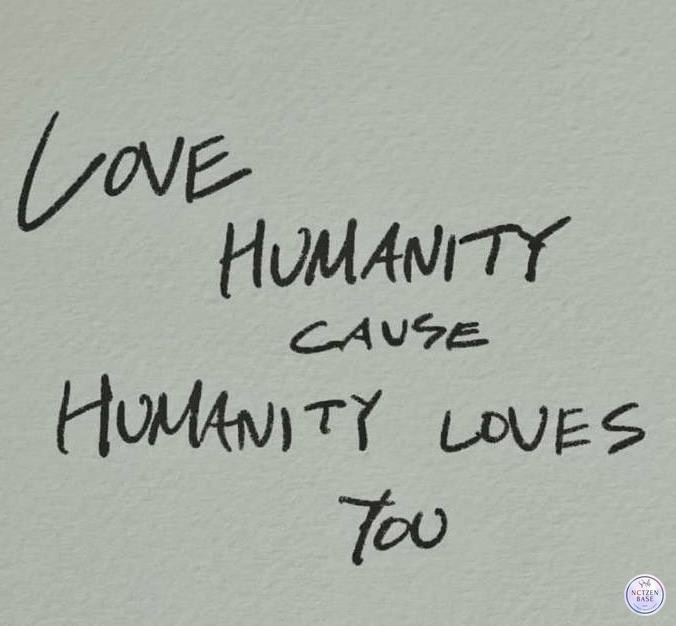 LOVE
HUMANITY
CAUSE
HUMANITY LOVES
YOU
NCTZEN
BASE